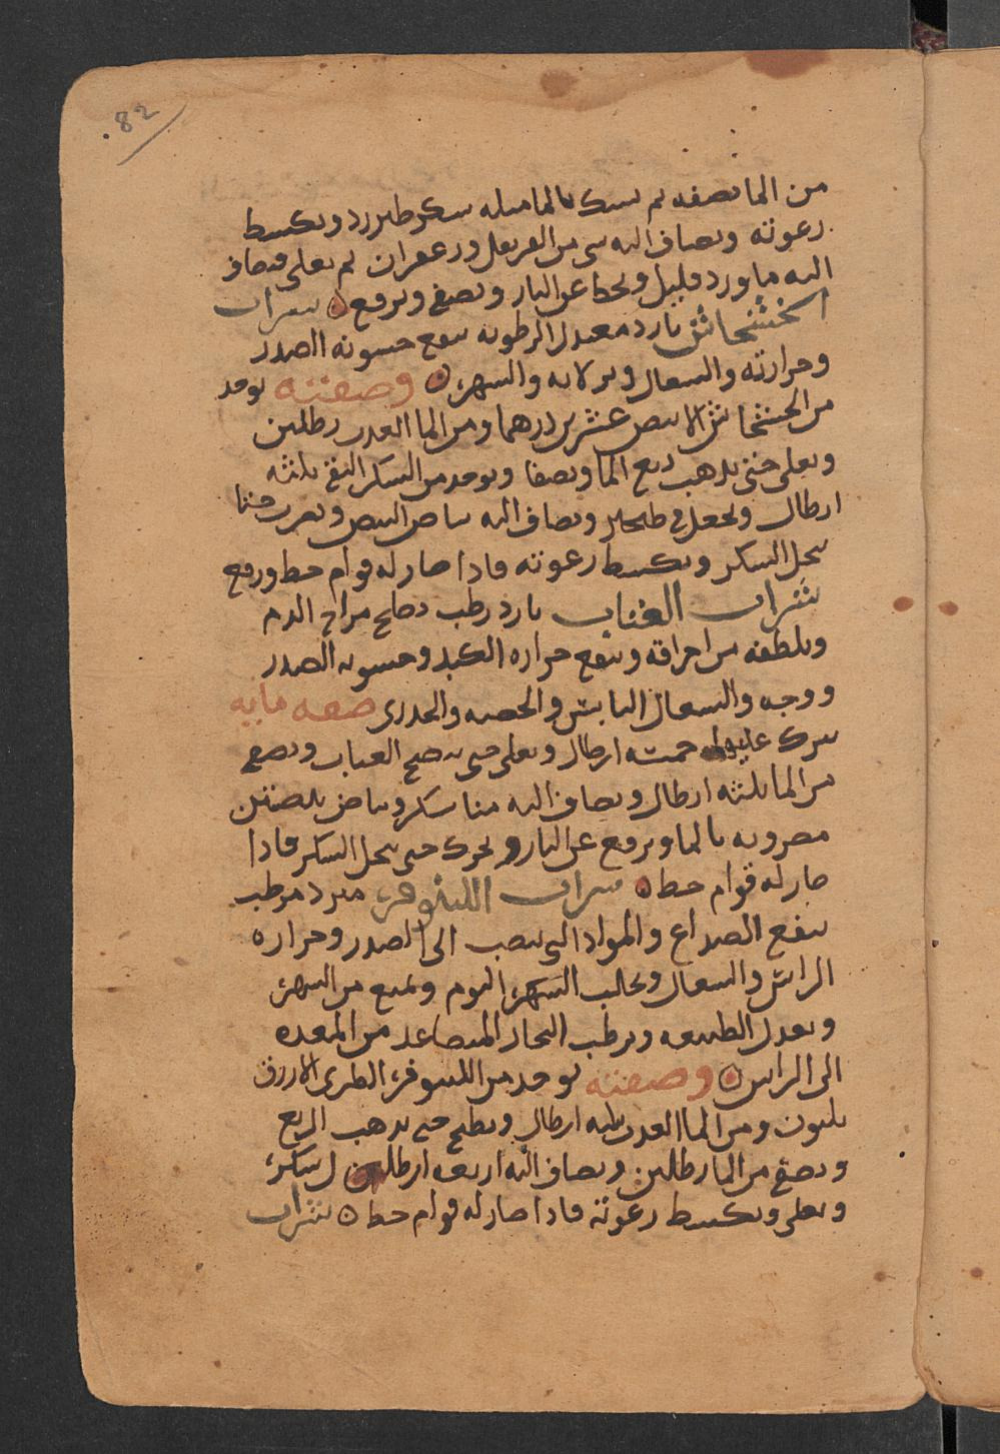 82
من الما نصفه ثم يسبك بالما مثله سكر طبرزد وتكسط
رغوته ويضاف اليه شي من القرنفل وزعفران ثم يغلى ويضاف
اليه ماورد قليل ويحط عن النار ويصفى ويرفع شراب
الخشخاش بارد معتدل الرطوبه ينفع خشونه الصدر
وحرارته والسعال والسهر وصفته يوخد
من الخشخاش الابيض عشرين درهما ومن الما العدب رطلين
ويغلى حتى يدهب ربع الما ويصفا ويوخد من السكر النقي ثلثه
ارطال ويجعل في طنجير ويضاف اليه بياض البيض ويمرت حتا
ينحل السكر وتكسط رغوته فادا صار له قوام حط ورفع
شراب العناب بارد رطب يصلح مزاج الدم
ويلطفه من احراقه وينفع حراره الكبد وخشونه الصدر
ووجعه والسعال اليابس والحصبه والجدري صفه مايه
يترك عليها خمسه ارطال ويغلى حتى ينضج العناب ويصفى
من الما ثلثه ارطال ويضاف اليه منا سكر وبياض بيضتين
مضروبه بالما ويرفع عن النار ويحرك حتى ينحل السكر فادا
صار له قوام حط شراب اللينوفر مبرد مرطب
ينفع الصداع والمواد التي تنصب الى الصدر وحراره
الراس والسعال ويجلب النوم ويمنع من السهر
ويعدل الطبيعه ويرطب البخار المتصاعد من المعده
الى الراس وصفته يوخد من اللينوفر الطري الازرق
ثلثون ومن الما العدب ثلثه ارطال ويطبخ حتى يدهب الربع
ويصفى من الما رطلين ويضاف اليه اربعه ارطال سكر
ويغلى وتكسط رغوته فادا صار له قوام حط شراب